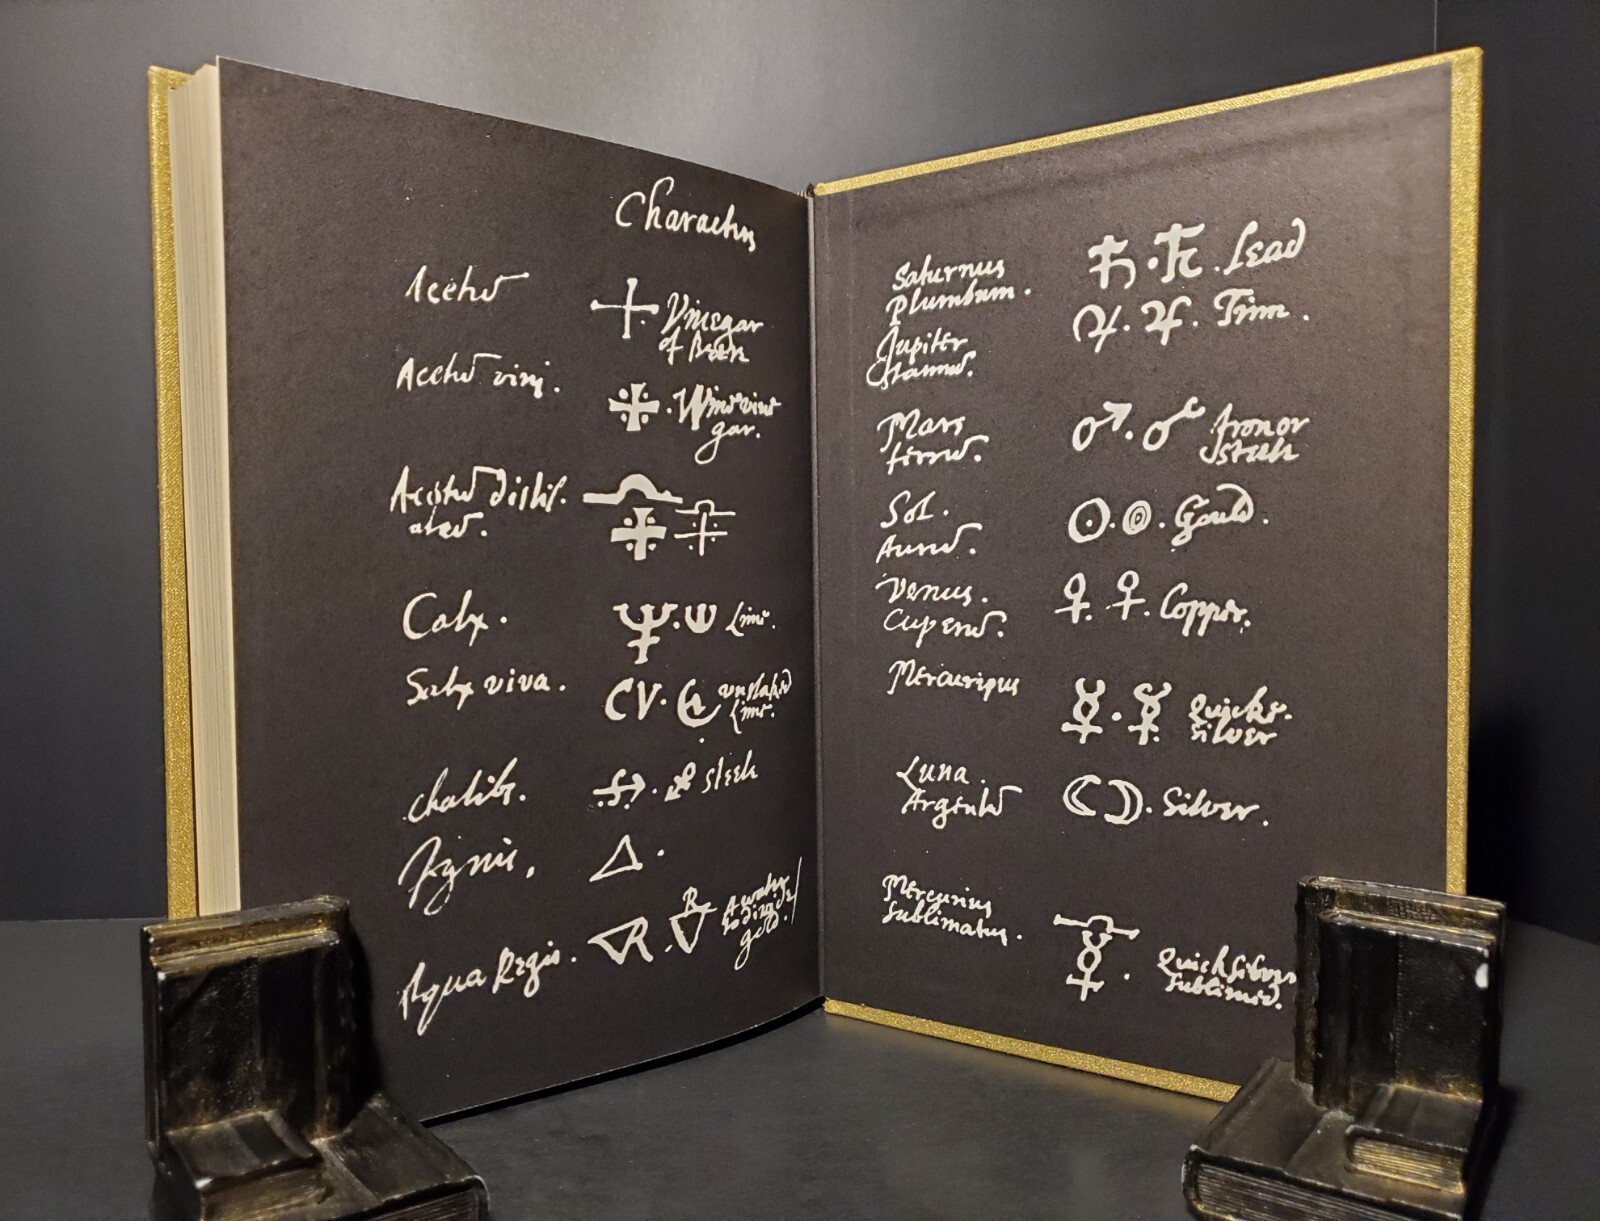 Characters
Acetū
Vinegar
of Beere
Acetū vini.
Wine vine
gar.
Acetū distil.
atū.
Calx.
Lime.
Calx viva.
CV.
unslaked
Lime.
Chalibs.
Steele
Ignis.
Aqua Regis.
R
R
A water
to divide
gold.
Saturnus
Plumbum.
Lead
Jupiter
Stannū.
Tinn.
Mars
ferrū.
Iron or
steele
Sol.
Aurū.
Gould.
Venus.
Cuperū.
Copper.
Mercurius
Quicke.
silver
Luna.
Argentū
Silver.
Mercurius
Sublimatus.
Quicksilver
Sublimed.